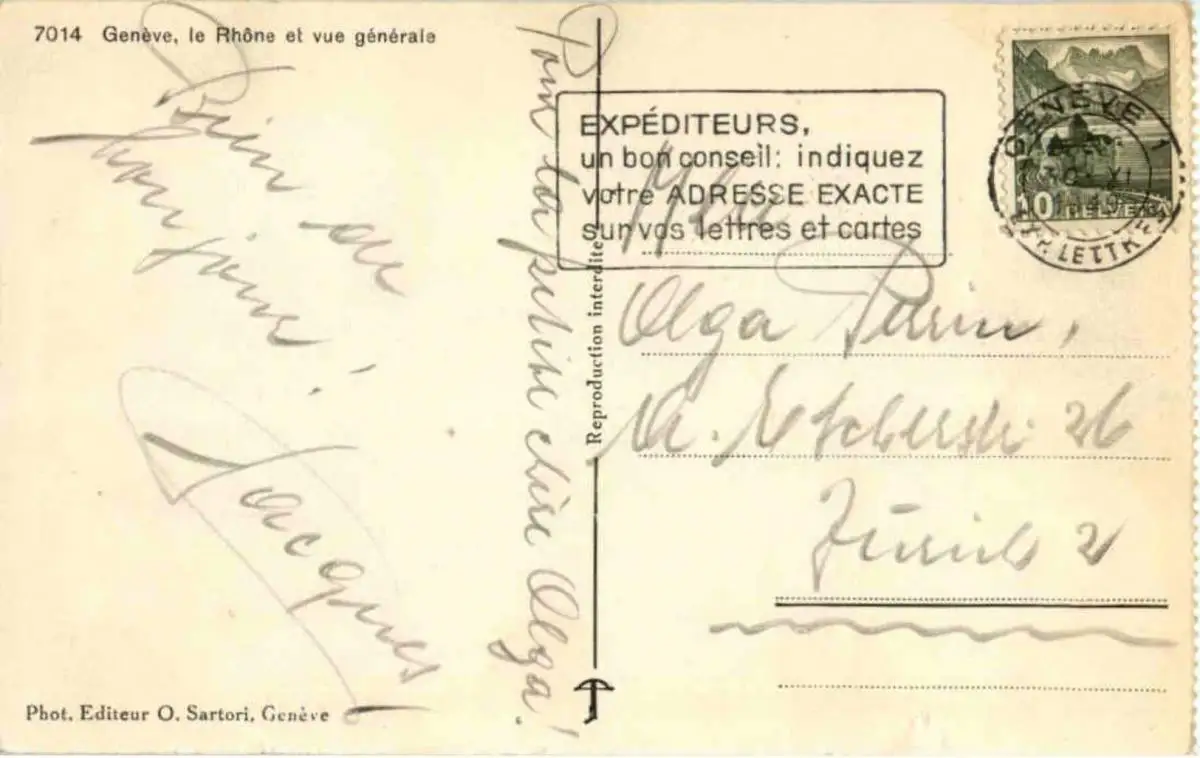 7014 Genève, le Rhône et vue générale
Bien de
bonjours!
Jacques
Phot. Editeur O. Sartori, Genève
Pour ta petite chère Olga!
Reproduction interdite
EXPÉDITEURS,
un bon conseil: indiquez
votre ADRESSE EXACTE
sur vos lettres et cartes
GENÈVE 1
EXP. LETTRES
10 HELVETIA
Olga
A. Escherstr. 26
Zürich 2